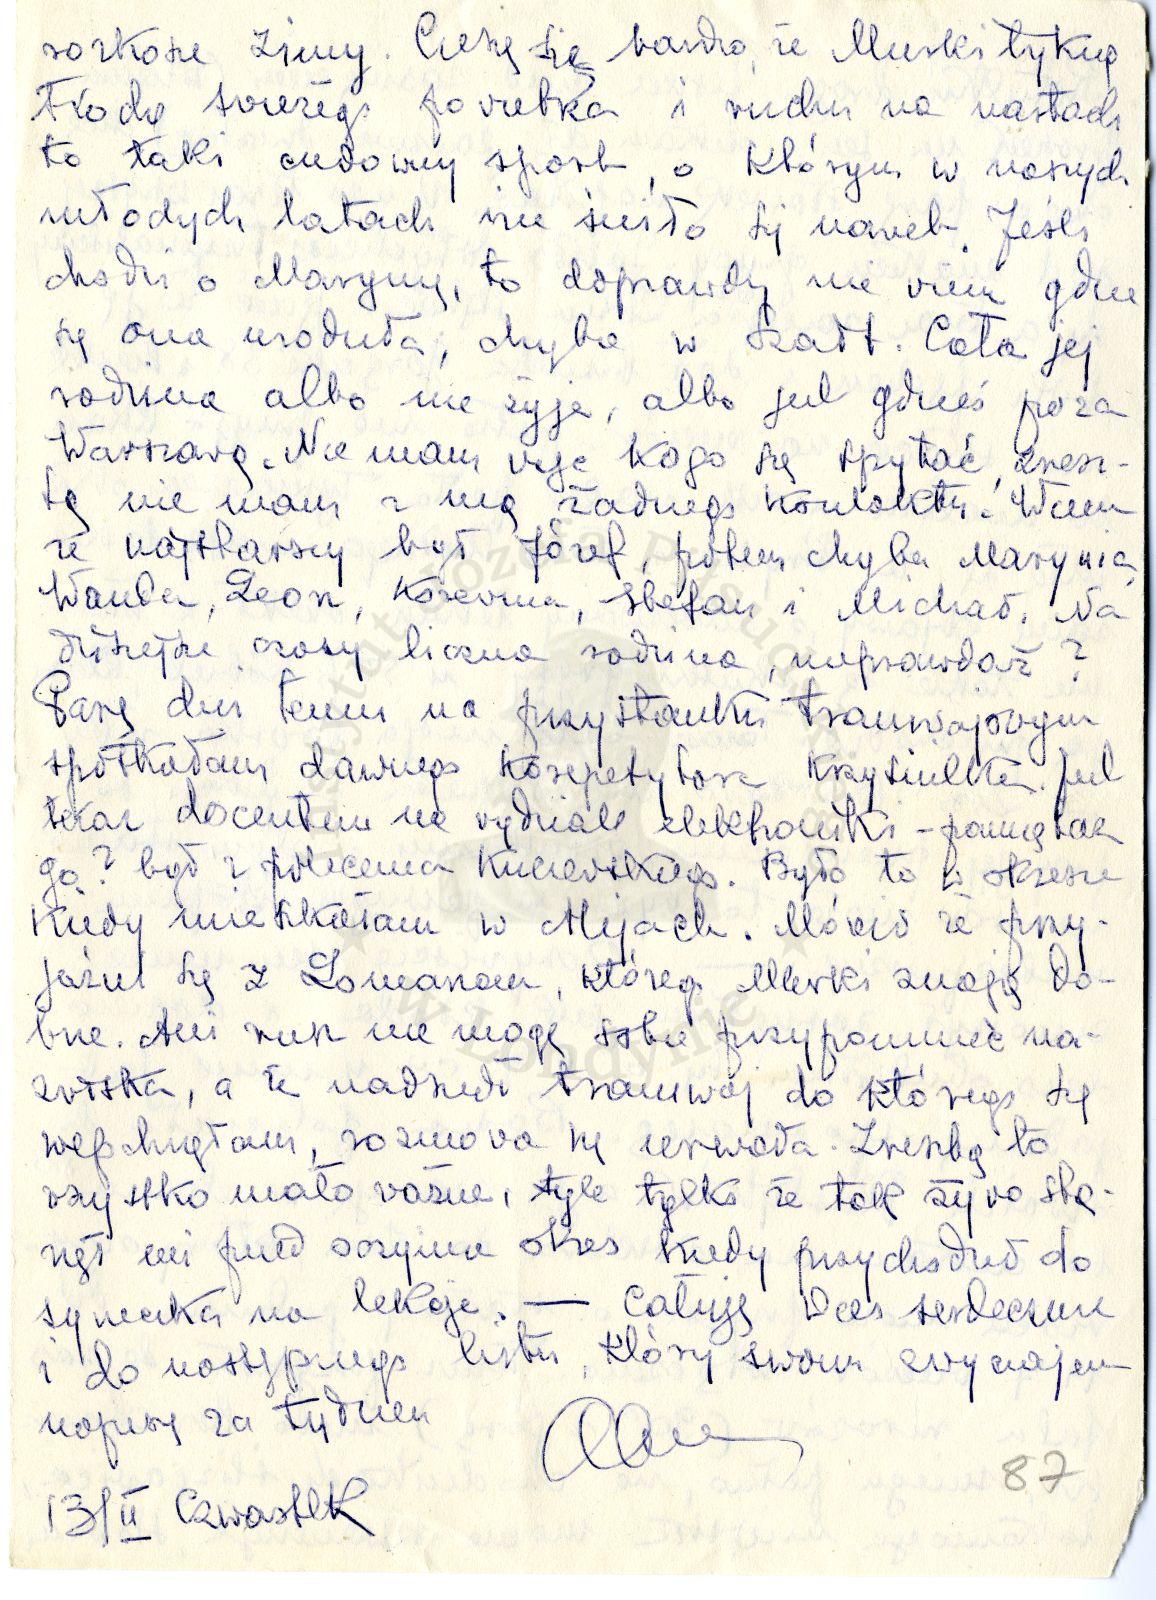 rozkosze zimy. Cieszę się bardzo, że Murski łykną
trochę świeżego powietrza i ruchu na nartach
to taki cudowny sport, o którym w naszych
młodych latach nie śniło się nawet. Jeśli
chodzi o Marynię, to doprawdy nie wiem gdzie
się ona urodziła, chyba w Cała jej
rodzina albo nie żyje, albo jest gdzieś poza
Warszawą. Nie mam więc kogo się spytać, zresz-
tą nie mam z nią żadnego kontaktu. Wiem
że najstarszy był Józef, potem chyba Marynia,
Wanda, Leon, Stefan i Michał. Na
dzisiejsze czasy liczna rodzina, nieprawdaż?
Parę dni temu na przystanku tramwajowym
spotkałam dawnego korepetytora Jest
teraz docentem na wydziale elektroniki - pamiętasz
go? był z polecenia Było to w okresie
kiedy mieszkałam w Alejach. Mówił że przy-
jaźni się z którego Murski znają do-
brze. Ani rusz nie mogę sobie przypomnieć na-
zwiska, a że nadszedł tramwaj do którego się
wepchnęłam, rozmowa się urwała. Zresztą to
wszystko mało ważne, tyle tylko że tak żywo sta-
nął mi przed oczyma okres kiedy przychodził do
syneczka na lekcje. — Całuję Was serdecznie
i do następnego listu, który swoim zwyczajem
napiszę za tydzień
13/II Czwartek
87
Instytut Józefa Piłsudskiego
w Londynie